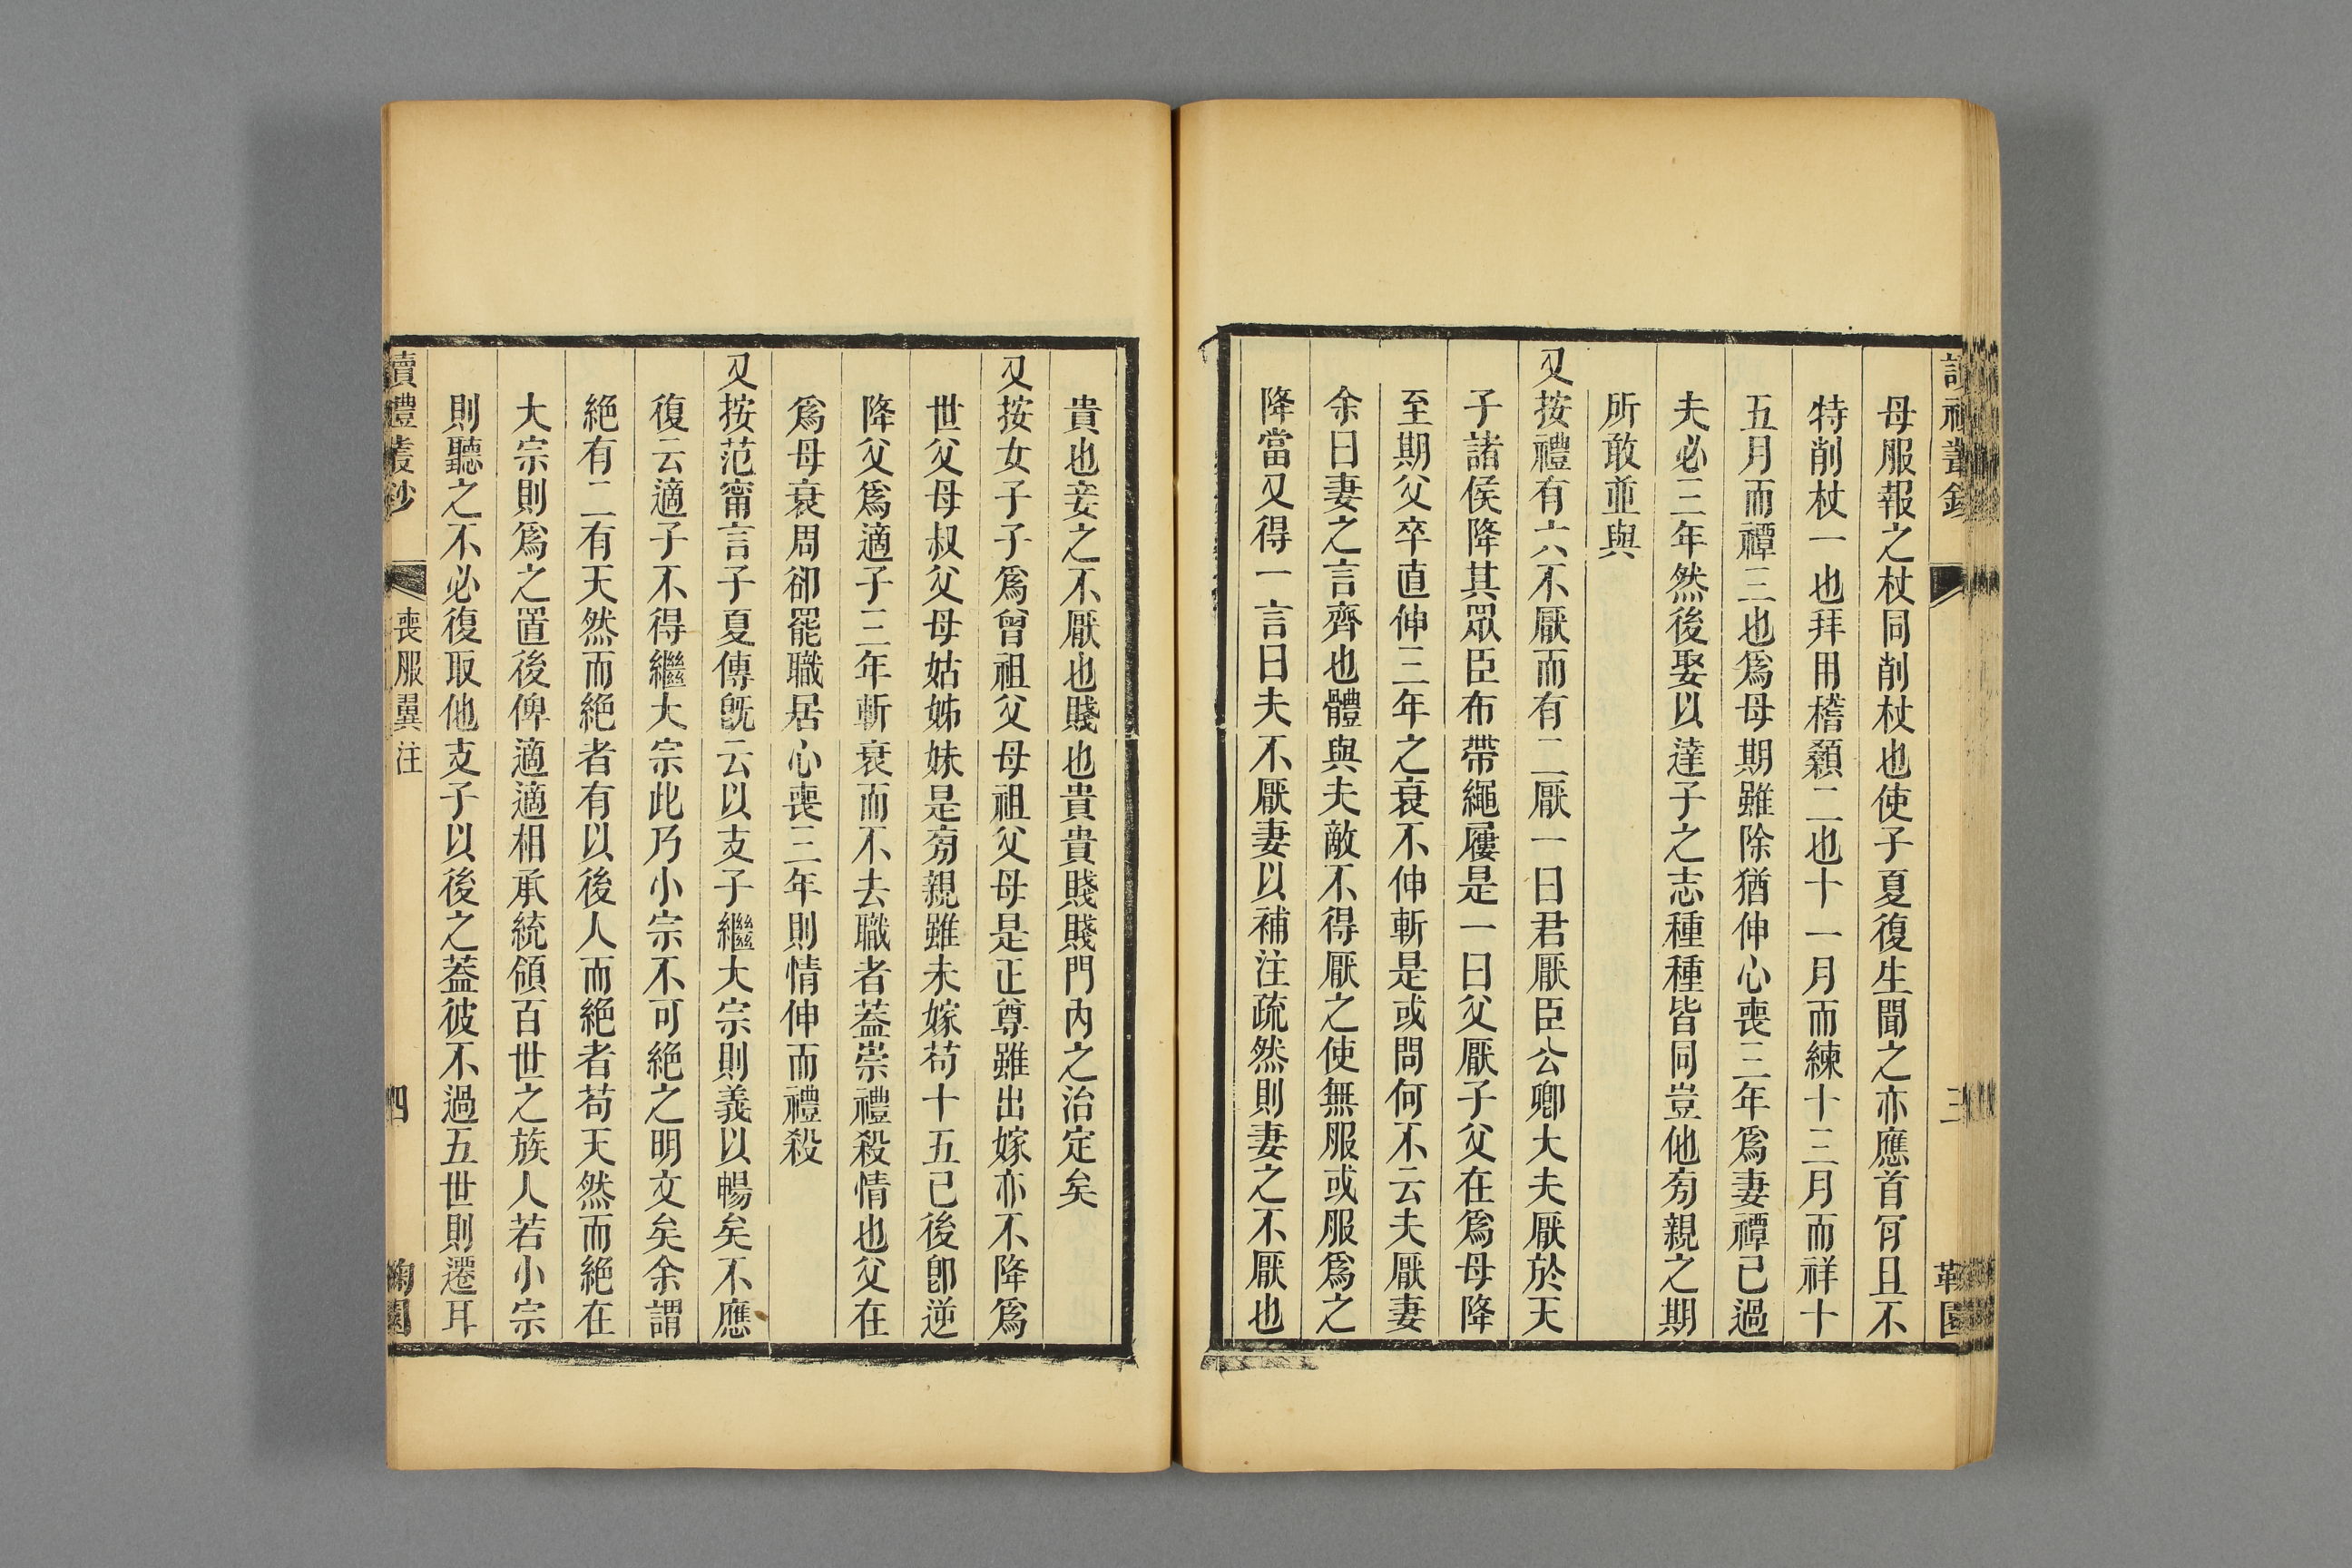 母服報之杖同削杖也使子夏復生聞之亦應首肎且不
特削杖一也拜用稽顙二也十一月而練十三月而祥十
五月而禫三也爲母期雖除猶伸心喪三年爲妻禫已過
夫必三年然後娶以達子之志種種皆同豈他旁親之期
所敢並與
又按禮有六不厭而有二厭一曰君厭臣公卿大夫厭於天
子諸侯降其眾臣布帶繩屨是一曰父厭子父在爲母降
至期父卒直伸三年之衰不伸斬是或問何不云夫厭妻
余曰妻之言齊也體與夫敵不得厭之使無服或服爲之
降當又得一言曰夫不厭妻以補注疏然則妻之不厭也
貴也妾之不厭也賤也貴貴賤賤門內之治定矣
又按女子子爲曾祖父母祖父母是正尊雖出嫁亦不降爲
世父母叔父母姑姊妹是旁親雖未嫁苟十五已後卽逆
降父爲適子三年斬衰而不去職者蓋崇禮殺情也父在
爲母衰周卻罷職居心喪三年則情伸而禮殺
又按范甯言子夏傳旣云以支子繼大宗則義以暢矣不應
復云適子不得繼大宗此乃小宗不可絕之明文矣余謂
絕有二有天然而絕者有以後人而絕者苟天然而絕在
大宗則爲之置後俾適適相承統領百世之族人若小宗
則聽之不必復取他支子以後之蓋彼不過五世則遷耳
讀禮叢鈔
喪服翼注
四